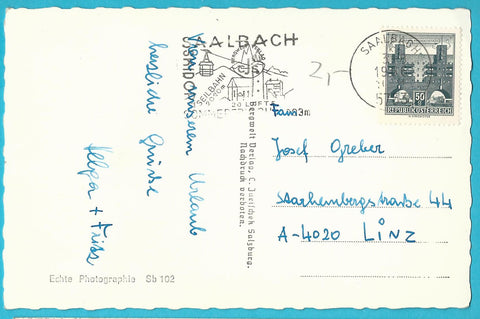 SAALBACH
SEILBAHN
SAALBACH
50
REPUBLIK ÖSTERREICH
2,-
Von unserem Urlaub
herzliche Grüße
Helga + Fritz
Fam.
Josef Greber
Starhembergstraße 44
A-4020 LINZ
Bergwelt Verlag, C. Jurischek Salzburg.
Nachdruck verboten.
Echte Photographie Sb 102